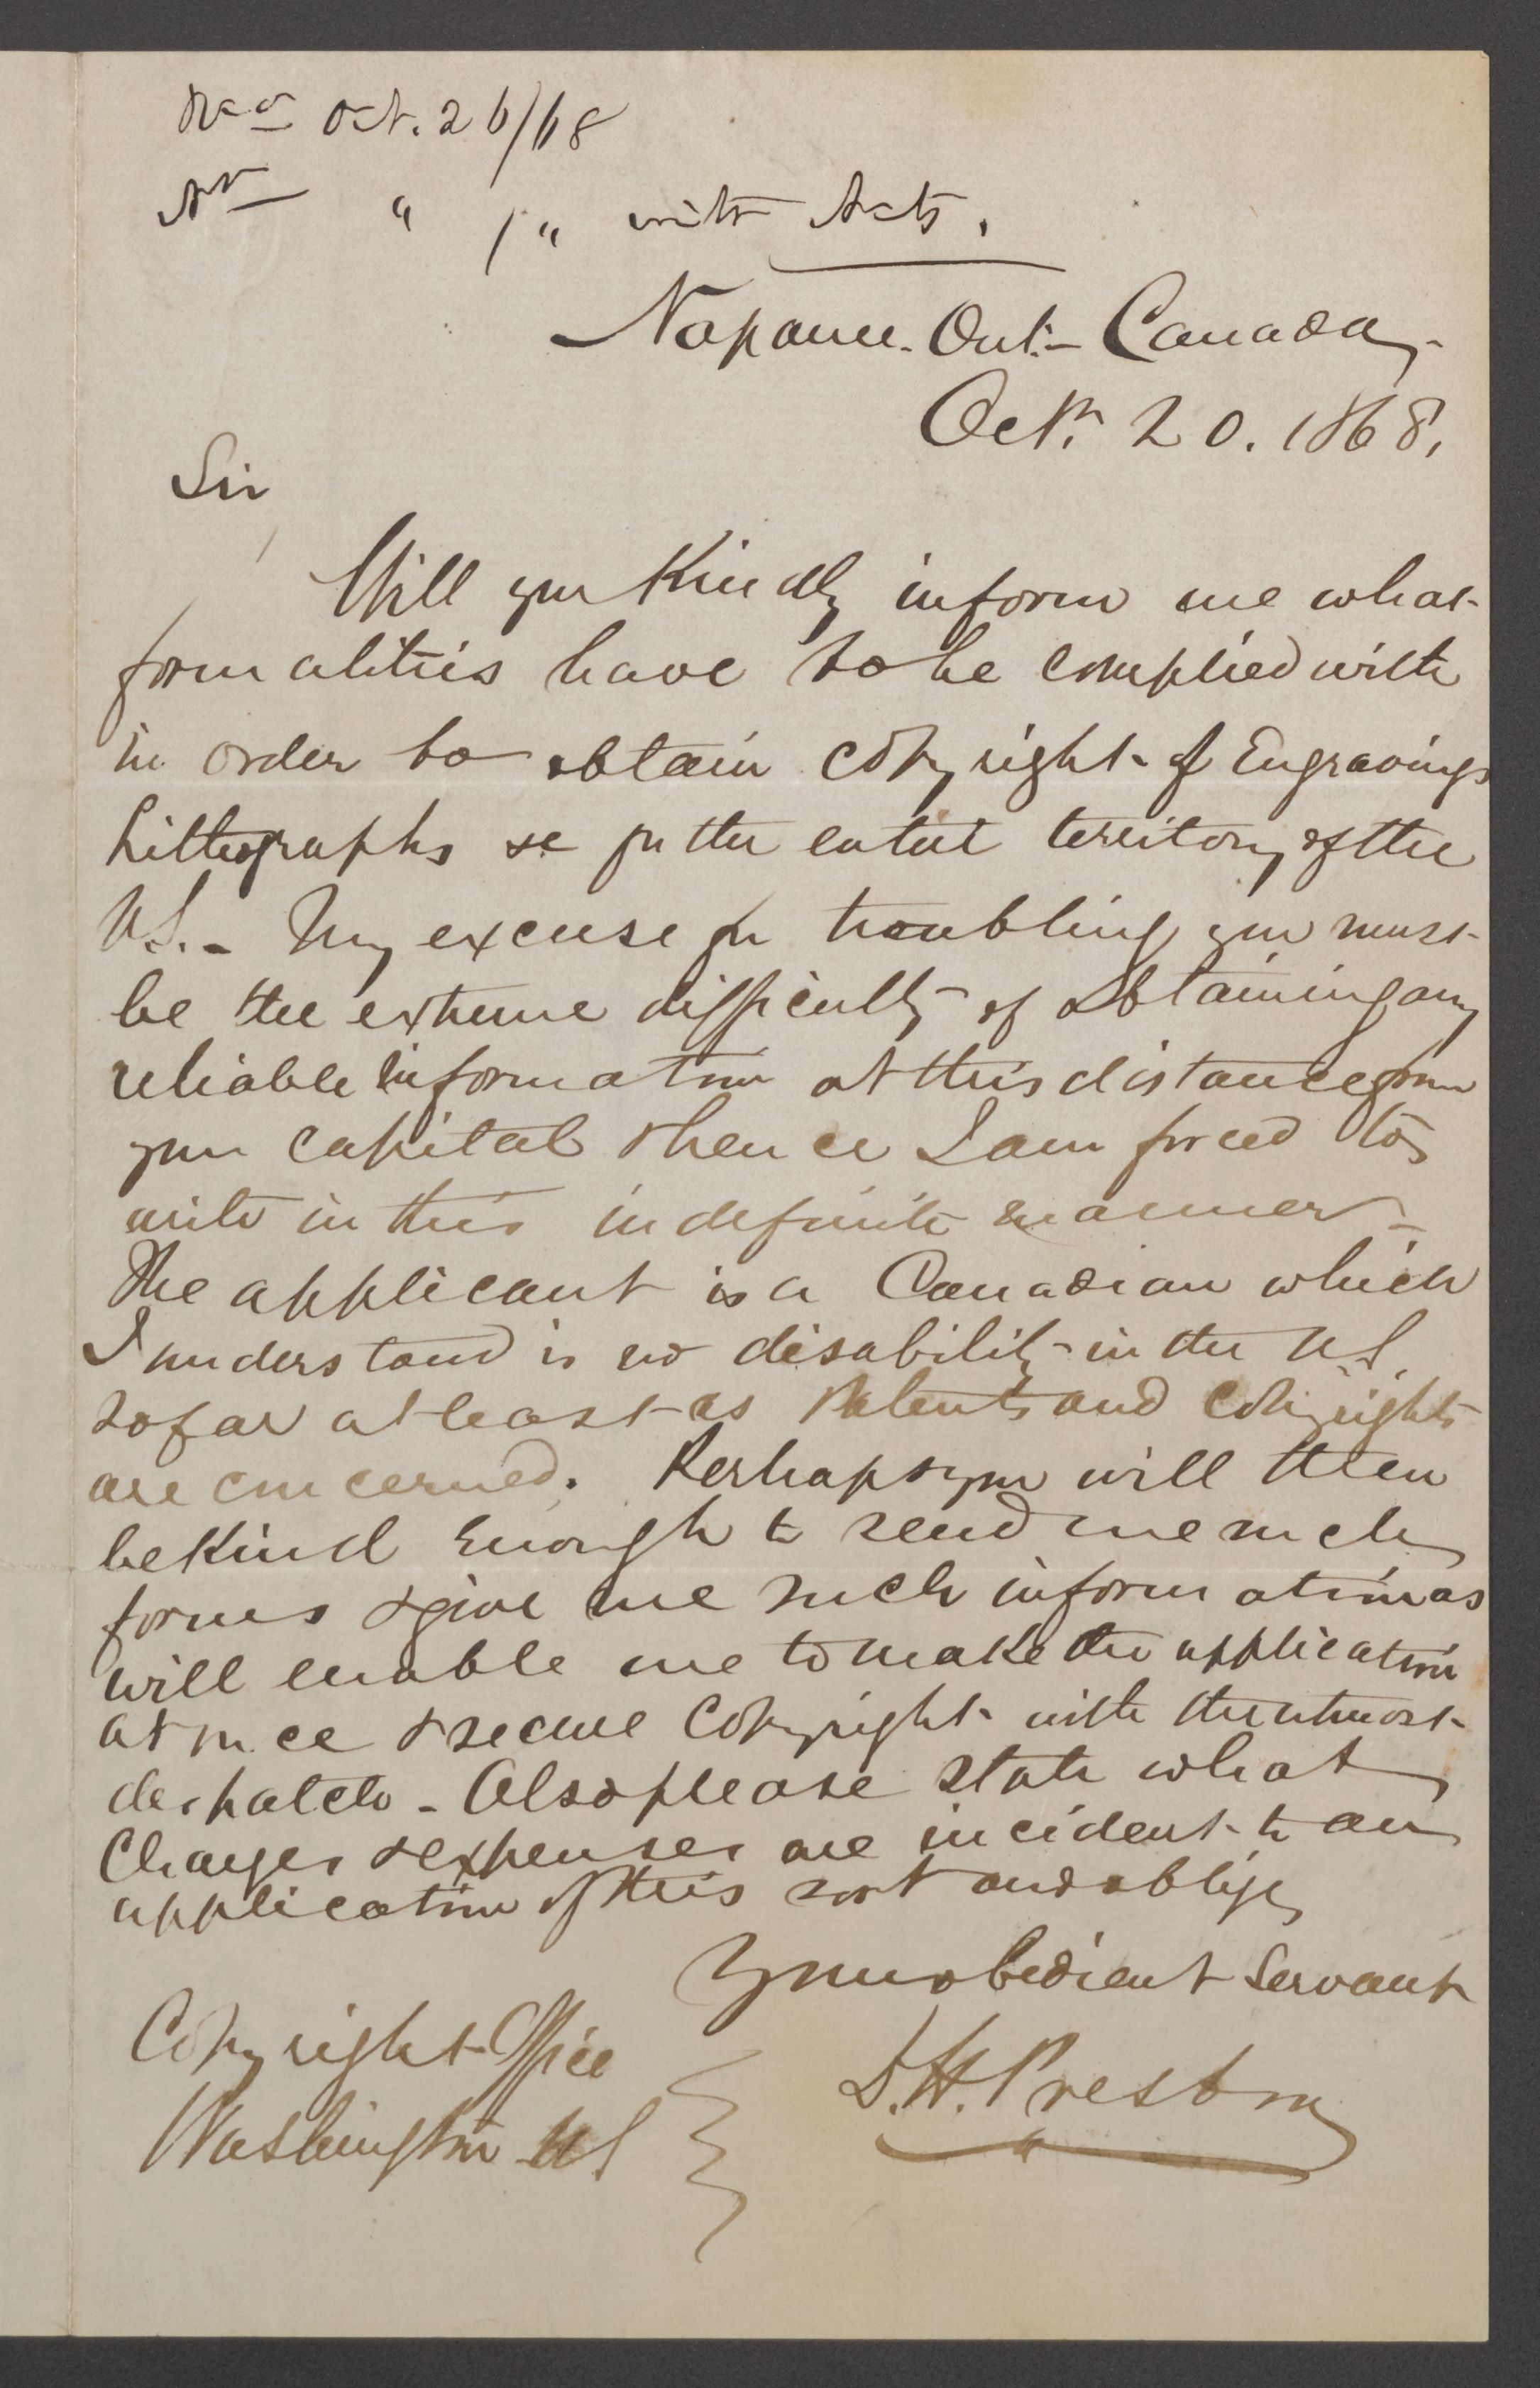 Rec'd Oct. 26/68
Ansd " / " with Acts.
Napanee. Ont:- Canada,
Octr. 20. 1868.
Sir
Will you Kindly inform me what
formalities have to be complied with
in order to obtain copyright of Engravings
Lithographs &c for the entire territory of the
U.S. - My excuse for troubling you must
be the extreme difficulty of obtaining any
reliable information at this distance from
your capital & hence I am forced to
write in this indefinite manner -
The applicant is a Canadian which
I understand is no disability in the U.S.
so far at least as Patents and Copyrights
are concerned. Perhaps you will then
be Kind Enough to send me such
forms & give me such information as
will enable me to make the application
at once & secure Copyright with the utmost
despatch - Also please state what
Charges & expenses are incident to an
application of this sort and oblige
Your obedient Servant
D.H. Preston
Copyright Office
Washington US